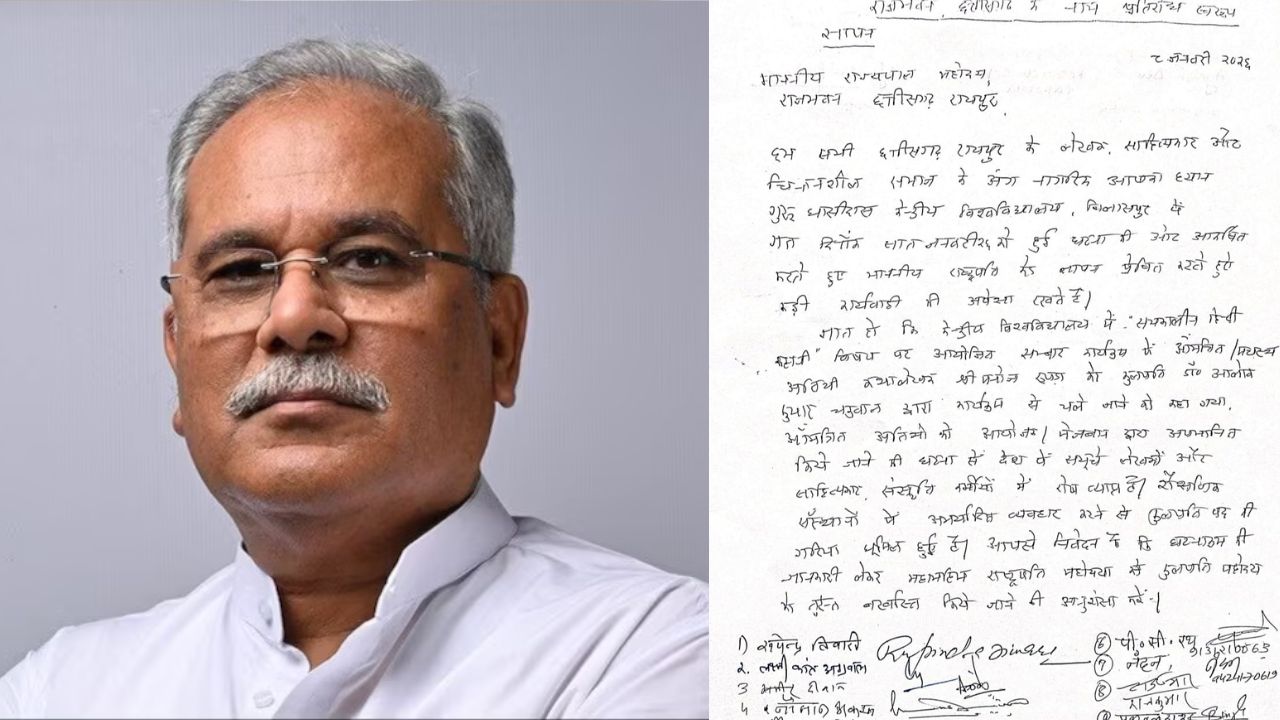 राजभवन, छत्तीसगढ़ के नाम
ज्ञापन
८ जनवरी २०२६
माननीय राज्यपाल महोदय,
राजभवन छत्तीसगढ़ रायपुर,
हम सभी छत्तीसगढ़ रायपुर के लेखक, साहित्यकार और
चिन्तनशील समाज के अंग नागरिक आपका ध्यान
गुरु घासीदास केन्द्रीय विश्वविद्यालय, बिलासपुर के
गत दिनाँक सात जनवरी २६ को हुई घटना की ओर आकर्षित
करते हुए माननीय राष्ट्रपति को ज्ञापन प्रेषित करते हुए
कड़ी कार्यवाही की अपेक्षा रखते हैं।
ज्ञात हो कि केन्द्रीय विश्वविद्यालय में "समकालीन हिन्दी
कहानी" विषय पर आयोजित कार्यक्रम में आमंत्रित
अतिथी कथालेखक श्री मनोज रूपड़ा को कुलपति डॉ आलोक
कुमार चक्रवाल द्वारा कार्यक्रम से चले जाने को कहा गया.
आमंत्रित अतिथी को आयोजक/मेजबान द्वारा अपमानित
किये जाने की घटना से देश के समूचे लेखकों और
साहित्यकार, संस्कृति कर्मीयों में रोष व्याप्त है। शैक्षणिक
संस्थानों में अमर्यादित व्यवहार करने से कुलपति पद की
गरिमा धूमिल हुई है। आपसे निवेदन है कि घटनाक्रम की
जानकारी लेकर महामहिम राष्ट्रपति महोदया से कुलपति महोदय
को तुरंत बरखास्त किये जाने की अनुशंसा करें।
1)
2. लक्ष्मीकांत अग्रवाल
3
4
6 पी. सी. रथ
7
8 राजकुमार